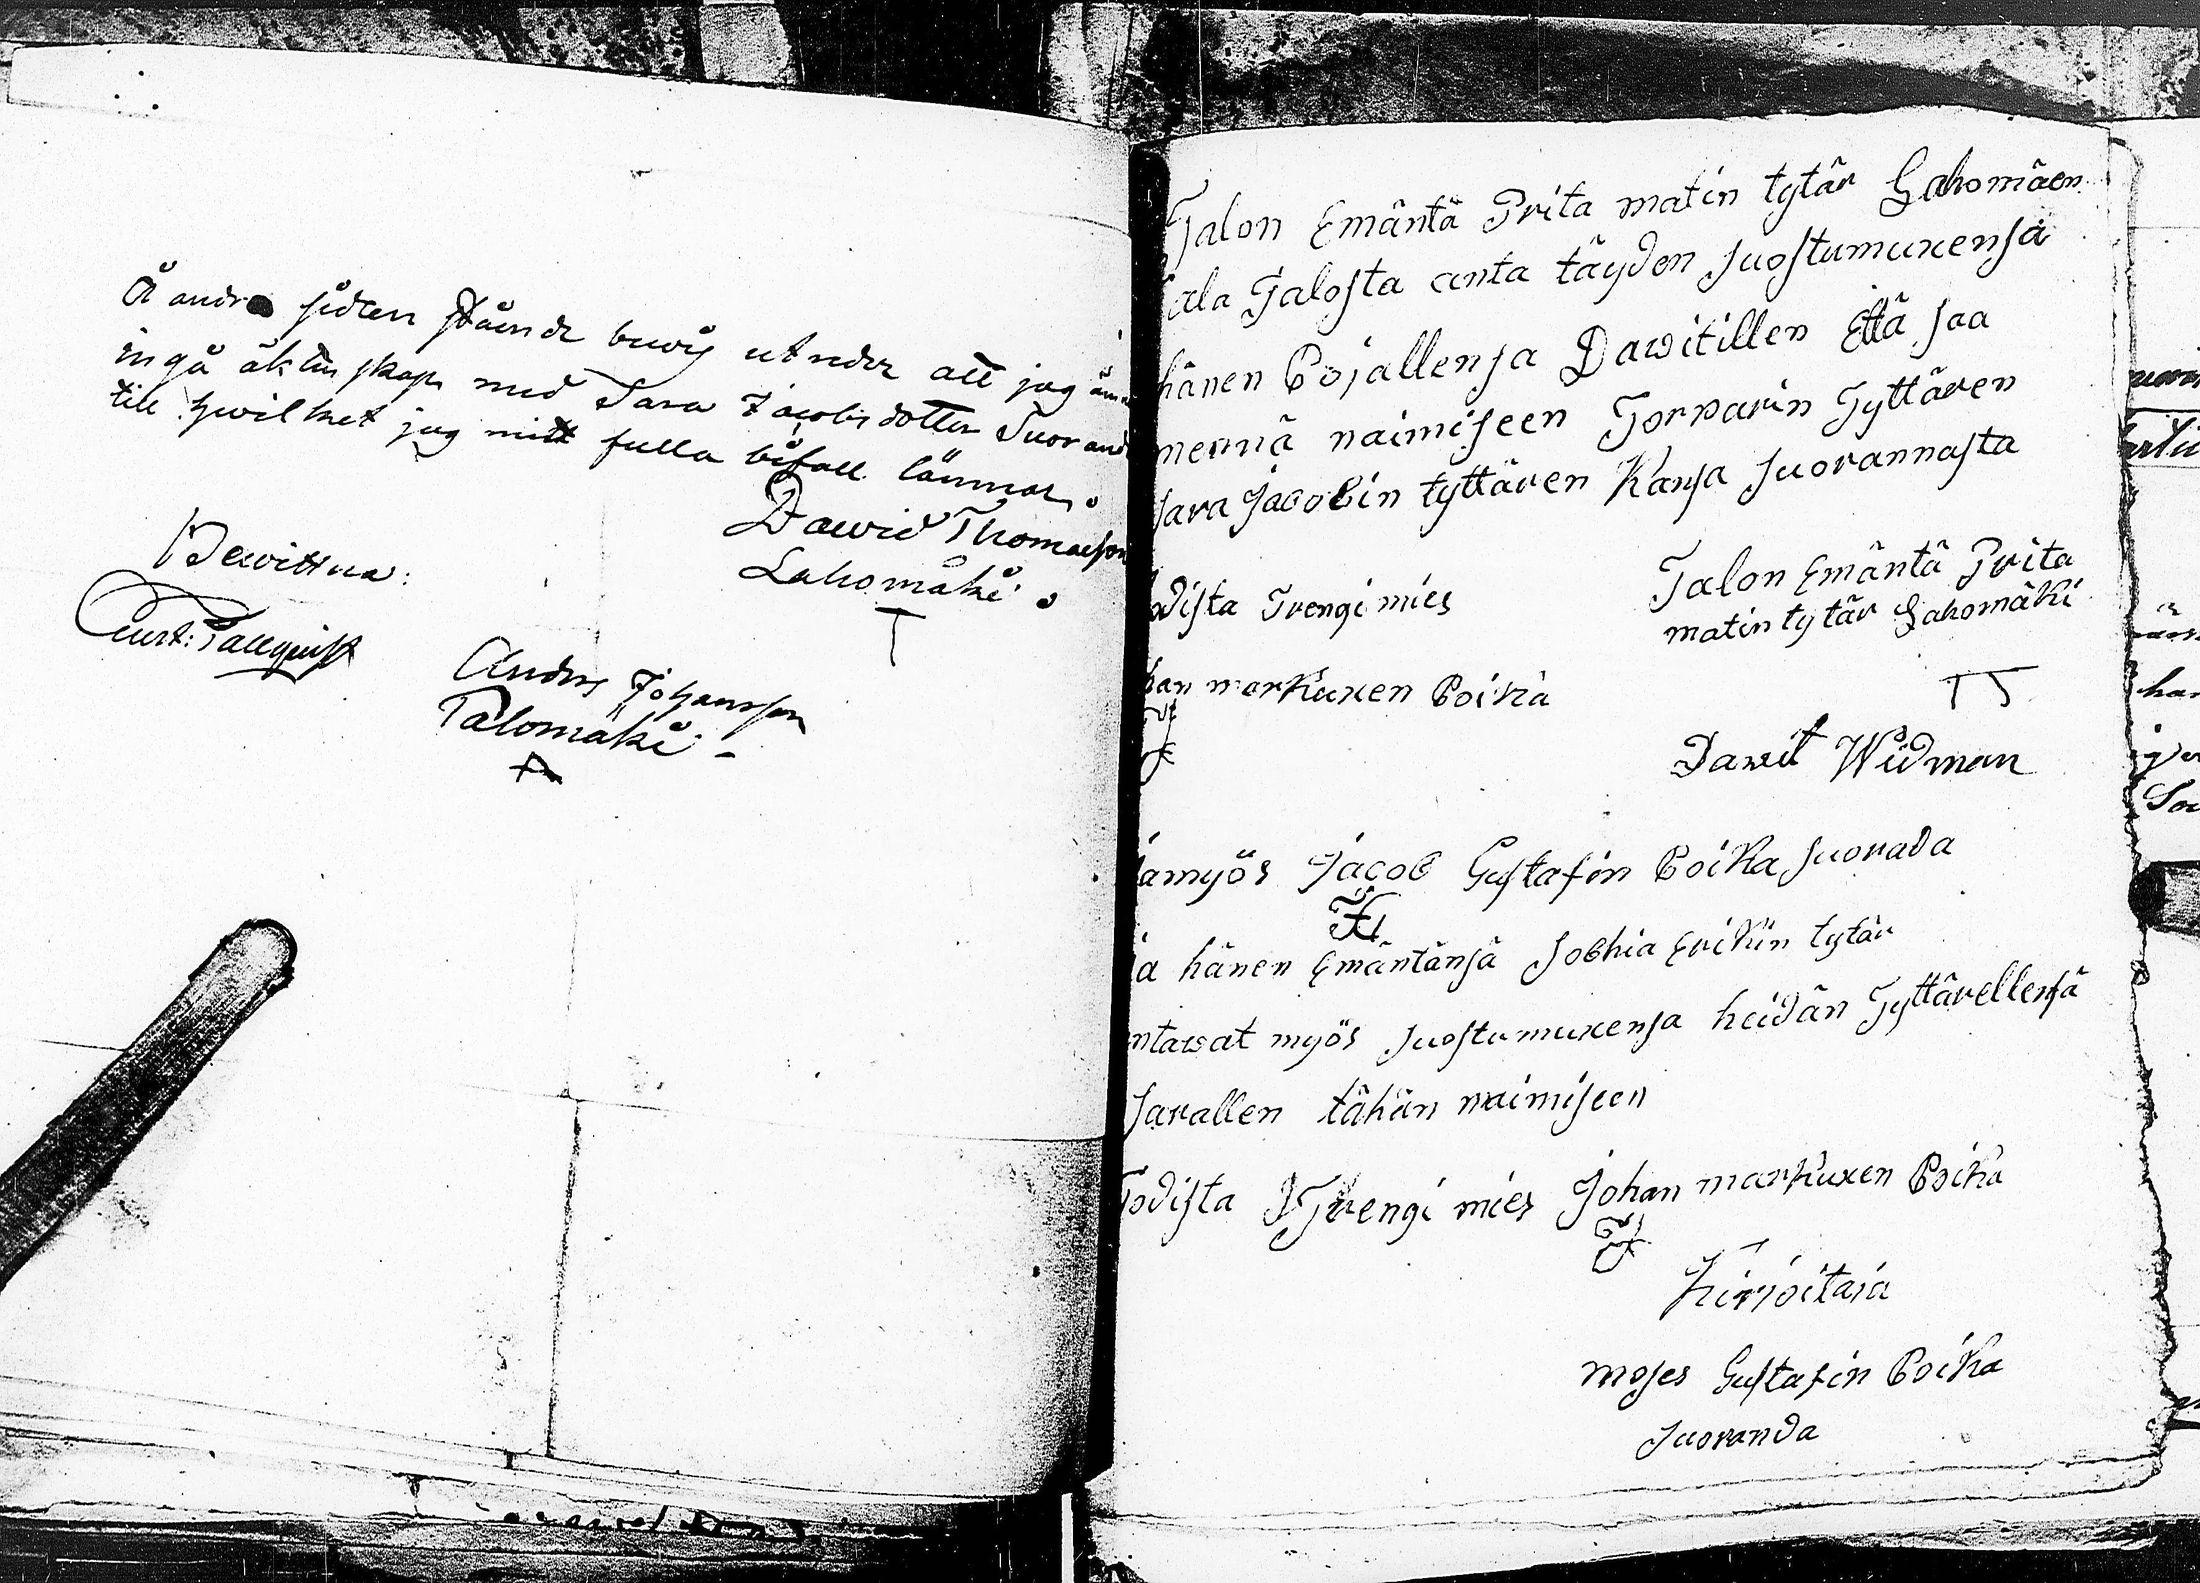 Å andra sidan stånde bewis utreder att jag
ingå äktenskap med Sara Jacobsdotter Suoranda
till hwilket jag mitt fulla bifall lämnar.
Dawid Thomasson
Lahomäki.
Bewittna:
Curt: Pallquist
Anders Johansson
Palomäki
Talon Emäntä Prita matin tytär Lahomäen
Talosta anta täyden suostumuxensa
hänen Pojallensa Dawitillen Että saa
mennä naimiseen Torparin Tyttären
Sara Jacobin tyttären Kansa Suorannasta
Talon Emäntä Prita
matin tytär Lahomäki
odista Trengi mies
han markuxen Poika
Dawit Widman
ja myös Jacob Gustafin Poika Suorada
ja hänen Emäntänsä Sophia Erikin tytär
ntawat myös Suostumuxensa heidän Tyttärellensä
Sarallen tähän naimiseen
Todista Trengi mies Johan markuxen Poika
Kirjoitaja
Moses Gustafin Poika
Suoranda